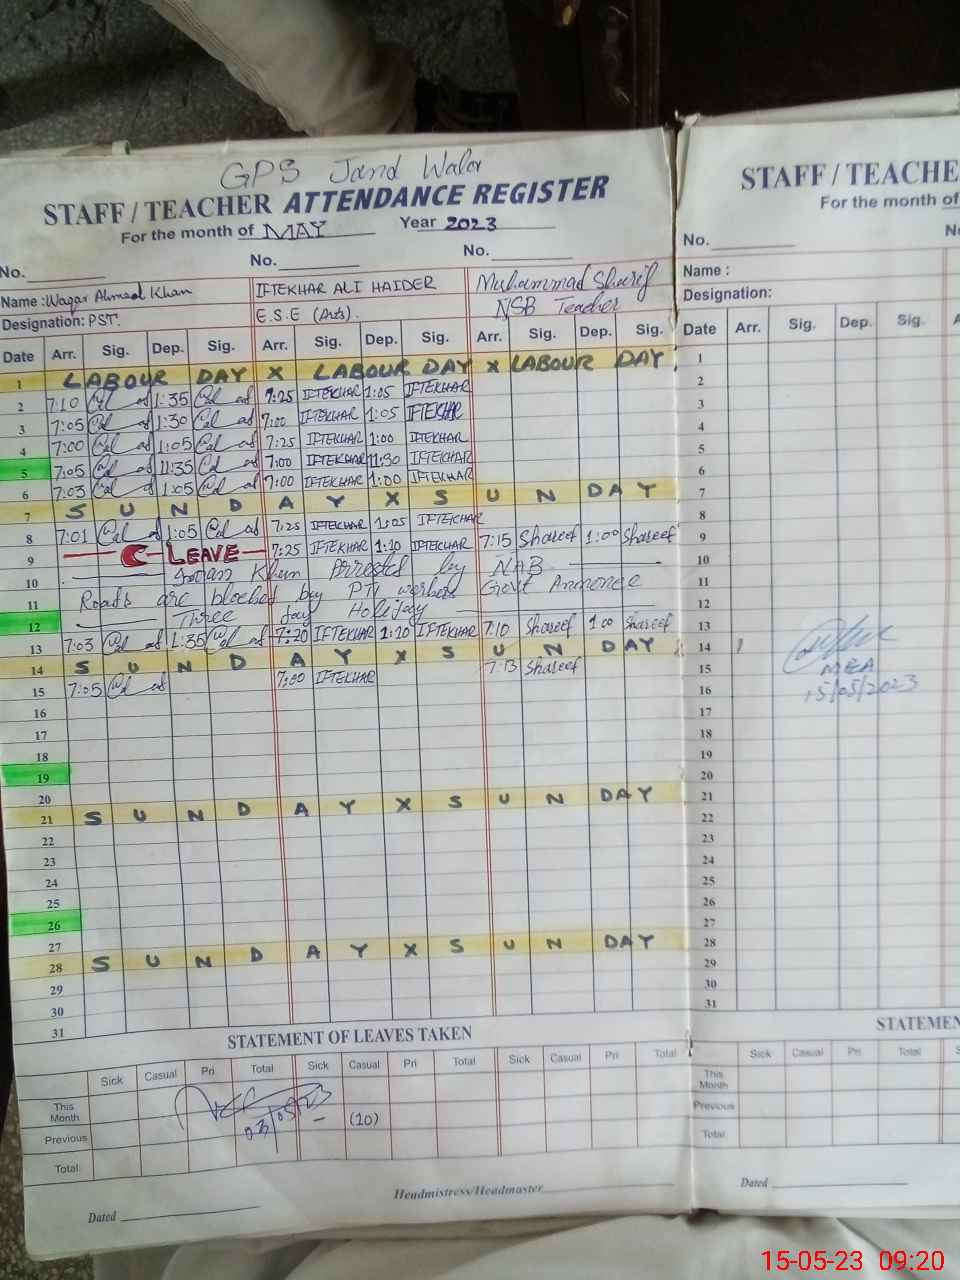 GPS Jand Wala
STAFF / TEACHER ATTENDANCE REGISTER
For the month of MAY Year 2023
No. No. No.
Name : Waqar Ahmad Khan IFTEKHAR ALI HAIDER Muhammad Sharif
Designation: PST. E.S.E (Arts). NSB Teacher
Date Arr. Sig. Dep. Sig. Arr. Sig. Dep. Sig. Arr. Sig. Dep. Sig.
1 LABOUR DAY X LABOUR DAY X LABOUR DAY
2 7:10 1:35 7:25 IFTEKHAR 1:05 IFTEKHAR
3 7:05 1:30 7:00 IFTEKHAR 1:05 IFTEKHAR
4 7:00 1:05 7:25 IFTEKHAR 1:00 IFTEKHAR
5 7:05 11:35 7:00 IFTEKHAR 11:30 IFTEKHAR
6 7:03 1:05 7:00 IFTEKHAR 1:00 IFTEKHAR
7 S U N D A Y X S U N DAY
8 7:01 1:05 7:25 IFTEKHAR 1:05 IFTEKHAR
9 C- LEAVE 7:25 IFTEKHAR 1:10 IFTEKHAR 7:15 Shareef 1:00 Shareef
10 Khan Arrested by NAB
11 Roads are blocked by PTI workers Govt Announce
12 Three day Holiday
13 7:03 1:35 7:20 IFTEKHAR 1:20 IFTEKHAR 7:10 Shareef 1 00 Shareef
14 S U N D A Y X S U N DAY
15 7:05 7:00 IFTEKHAR 7:13 Shareef
16
17
18
19
20
21 S U N D A Y X S U N DAY
22
23
24
25
26
27
28 S U N D A Y X S U N DAY
29
30
31
STATEMENT OF LEAVES TAKEN
Sick Casual Pri Total Sick Casual Pri Total Sick Casual Pri Total
This Month
Previous 03/05/23 (10)
Total:
Headmistress/Headmaster
Dated
STAFF / TEACHE
For the month of
No.
Name :
Designation:
Date Arr. Sig. Dep. Sig.
1
2
3
4
5
6
7
8
9
10
11
12
13
14
15 MEA
16 15/05/2023
17
18
19
20
21
22
23
24
25
26
27
28
29
30
31
STATEMEN
Sick Casual Pri Total
This Month
Previous
Total
Dated
15-05-23 09:20